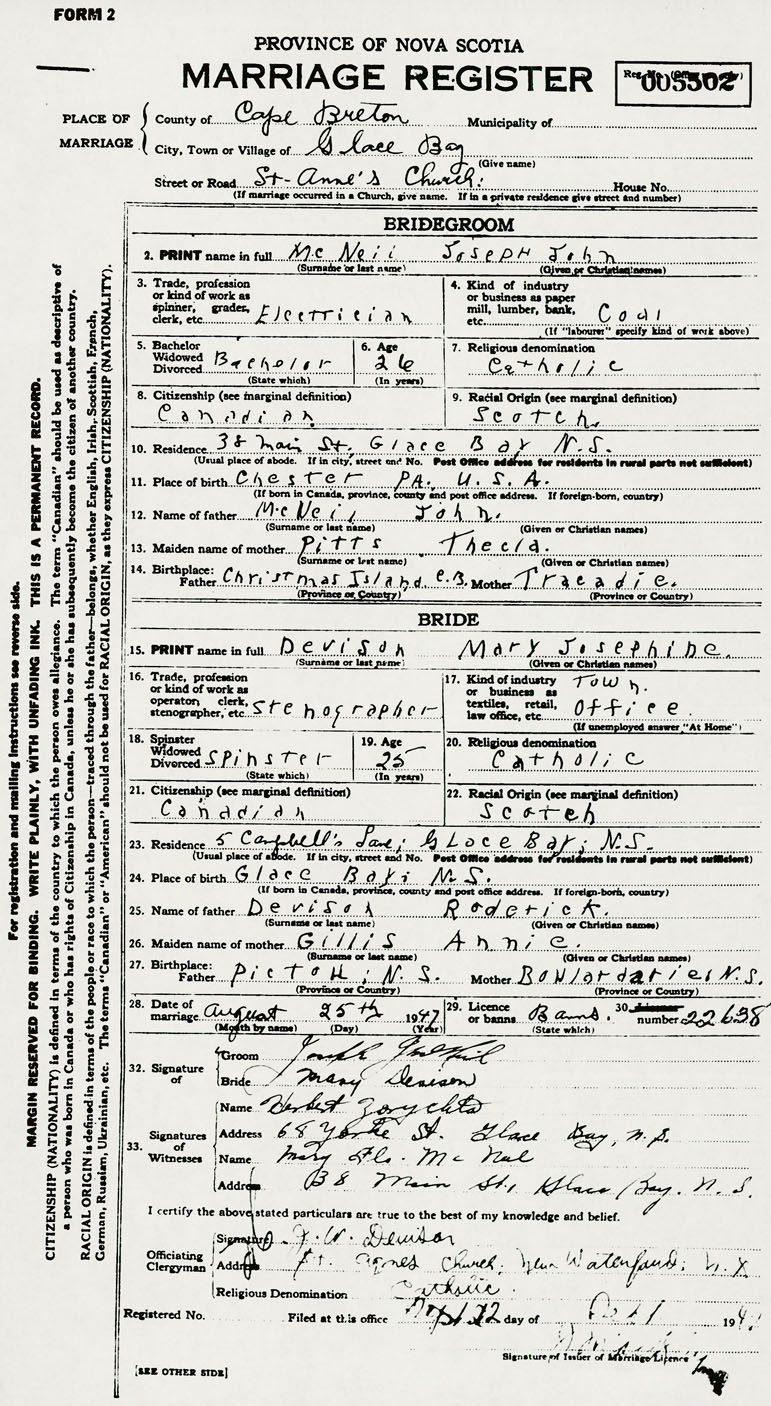 FORM 2
PROVINCE OF NOVA SCOTIA
MARRIAGE REGISTER
005502
PLACE OF MARRIAGE
County of Cape Breton Municipality of
City, Town or Village of Glace Bay
(Give name)
Street or Road St-Anne's Church. House No.
(If marriage occurred in a Church, give name. If in a private residence give street and number)
BRIDEGROOM
2. PRINT name in full McNeil Joseph John
(Surname or last name) (Given or Christian names)
3. Trade, profession or kind of work as spinner, grader, clerk, etc. Electrician
4. Kind of industry or business as paper mill, lumber, bank, etc. Coal
(If "labourer" specify kind of work above)
5. Bachelor Widowed Divorced Bachelor
(State which)
6. Age 26
(In years)
7. Religious denomination
Catholic
8. Citizenship (see marginal definition)
Canadian
9. Racial Origin (see marginal definition)
Scotch.
10. Residence 38 Main St. Glace Bay N.S.
(Usual place of abode. If in city, street and No. Post Office address for residents in rural parts not sufficient)
11. Place of birth Chester PA. U.S.A.
(If born in Canada, province, county and post office address. If foreign-born, country)
12. Name of father McNeil John.
(Surname or last name) (Given or Christian names)
13. Maiden name of mother Pitts Thecla.
(Surname or last name) (Given or Christian names)
14. Birthplace: Father Christmas Island C.B. Mother Tracadie.
(Province or Country) (Province or Country)
BRIDE
15. PRINT name in full Devison Mary Josephine.
(Surname or last name) (Given or Christian names)
16. Trade, profession or kind of work as operator, clerk, stenographer, etc. Stenographer
17. Kind of industry or business as textiles, retail, law office, etc. Town. Office.
(If unemployed answer "At Home")
18. Spinster Widowed Divorced Spinster
(State which)
19. Age 25
(In years)
20. Religious denomination
Catholic
21. Citizenship (see marginal definition)
Canadian
22. Racial Origin (see marginal definition)
Scotch
23. Residence 5 Campbell's Lane, Glace Bay, N.S.
(Usual place of abode. If in city, street and No. Post Office address for residents in rural parts not sufficient)
24. Place of birth Glace Bay, N.S.
(If born in Canada, province, county and post office address. If foreign-born, country)
25. Name of father Devison Roderick.
(Surname or last name) (Given or Christian names)
26. Maiden name of mother Gillis Annie.
(Surname or last name) (Given or Christian names)
27. Birthplace: Father Pictou, N.S. Mother Boulardarie, N.S.
(Province or Country) (Province or Country)
28. Date of marriage August 25th 1947
(Month by name) (Day) (Year)
29. Licence or banns Banns.
(State which)
30. number 22638
32. Signature of
Groom Joseph McNeil
Bride Mary Devison
33. Signatures of Witnesses
Name Herbert Zorychta
Address 68 Yorke St. Glace Bay, N.S.
Name Mary Flo. McNeil
Address 38 Main St., Glace Bay. N.S.
I certify the above stated particulars are true to the best of my knowledge and belief.
Officiating Clergyman
Signature J. W. Devison
Address St. Agnes Church, New Waterford, N.S.
Religious Denomination Catholic.
Registered No. Filed at this office day of 194
Signature of Issuer of Marriage Licence
[SEE OTHER SIDE]
For registration and mailing instructions see reverse side.
MARGIN RESERVED FOR BINDING. WRITE PLAINLY, WITH UNFADING INK. THIS IS A PERMANENT RECORD.
CITIZENSHIP (NATIONALITY) is defined in terms of the country to which the person owes allegiance. The term "Canadian" should be used as descriptive of
a person who was born in Canada or who has rights of Citizenship in Canada, unless he or she has subsequently become the citizen of another country.
RACIAL ORIGIN is defined in terms of the people or race to which the person—traced through the father—belongs, whether English, Irish, Scottish, French,
German, Russian, Ukrainian, etc. The terms "Canadian" or "American" should not be used for RACIAL ORIGIN, as they express CITIZENSHIP (NATIONALITY).